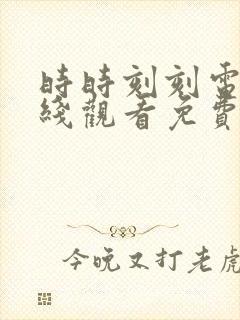 時時刻刻電
綫觀看免費
今晚又打老虎